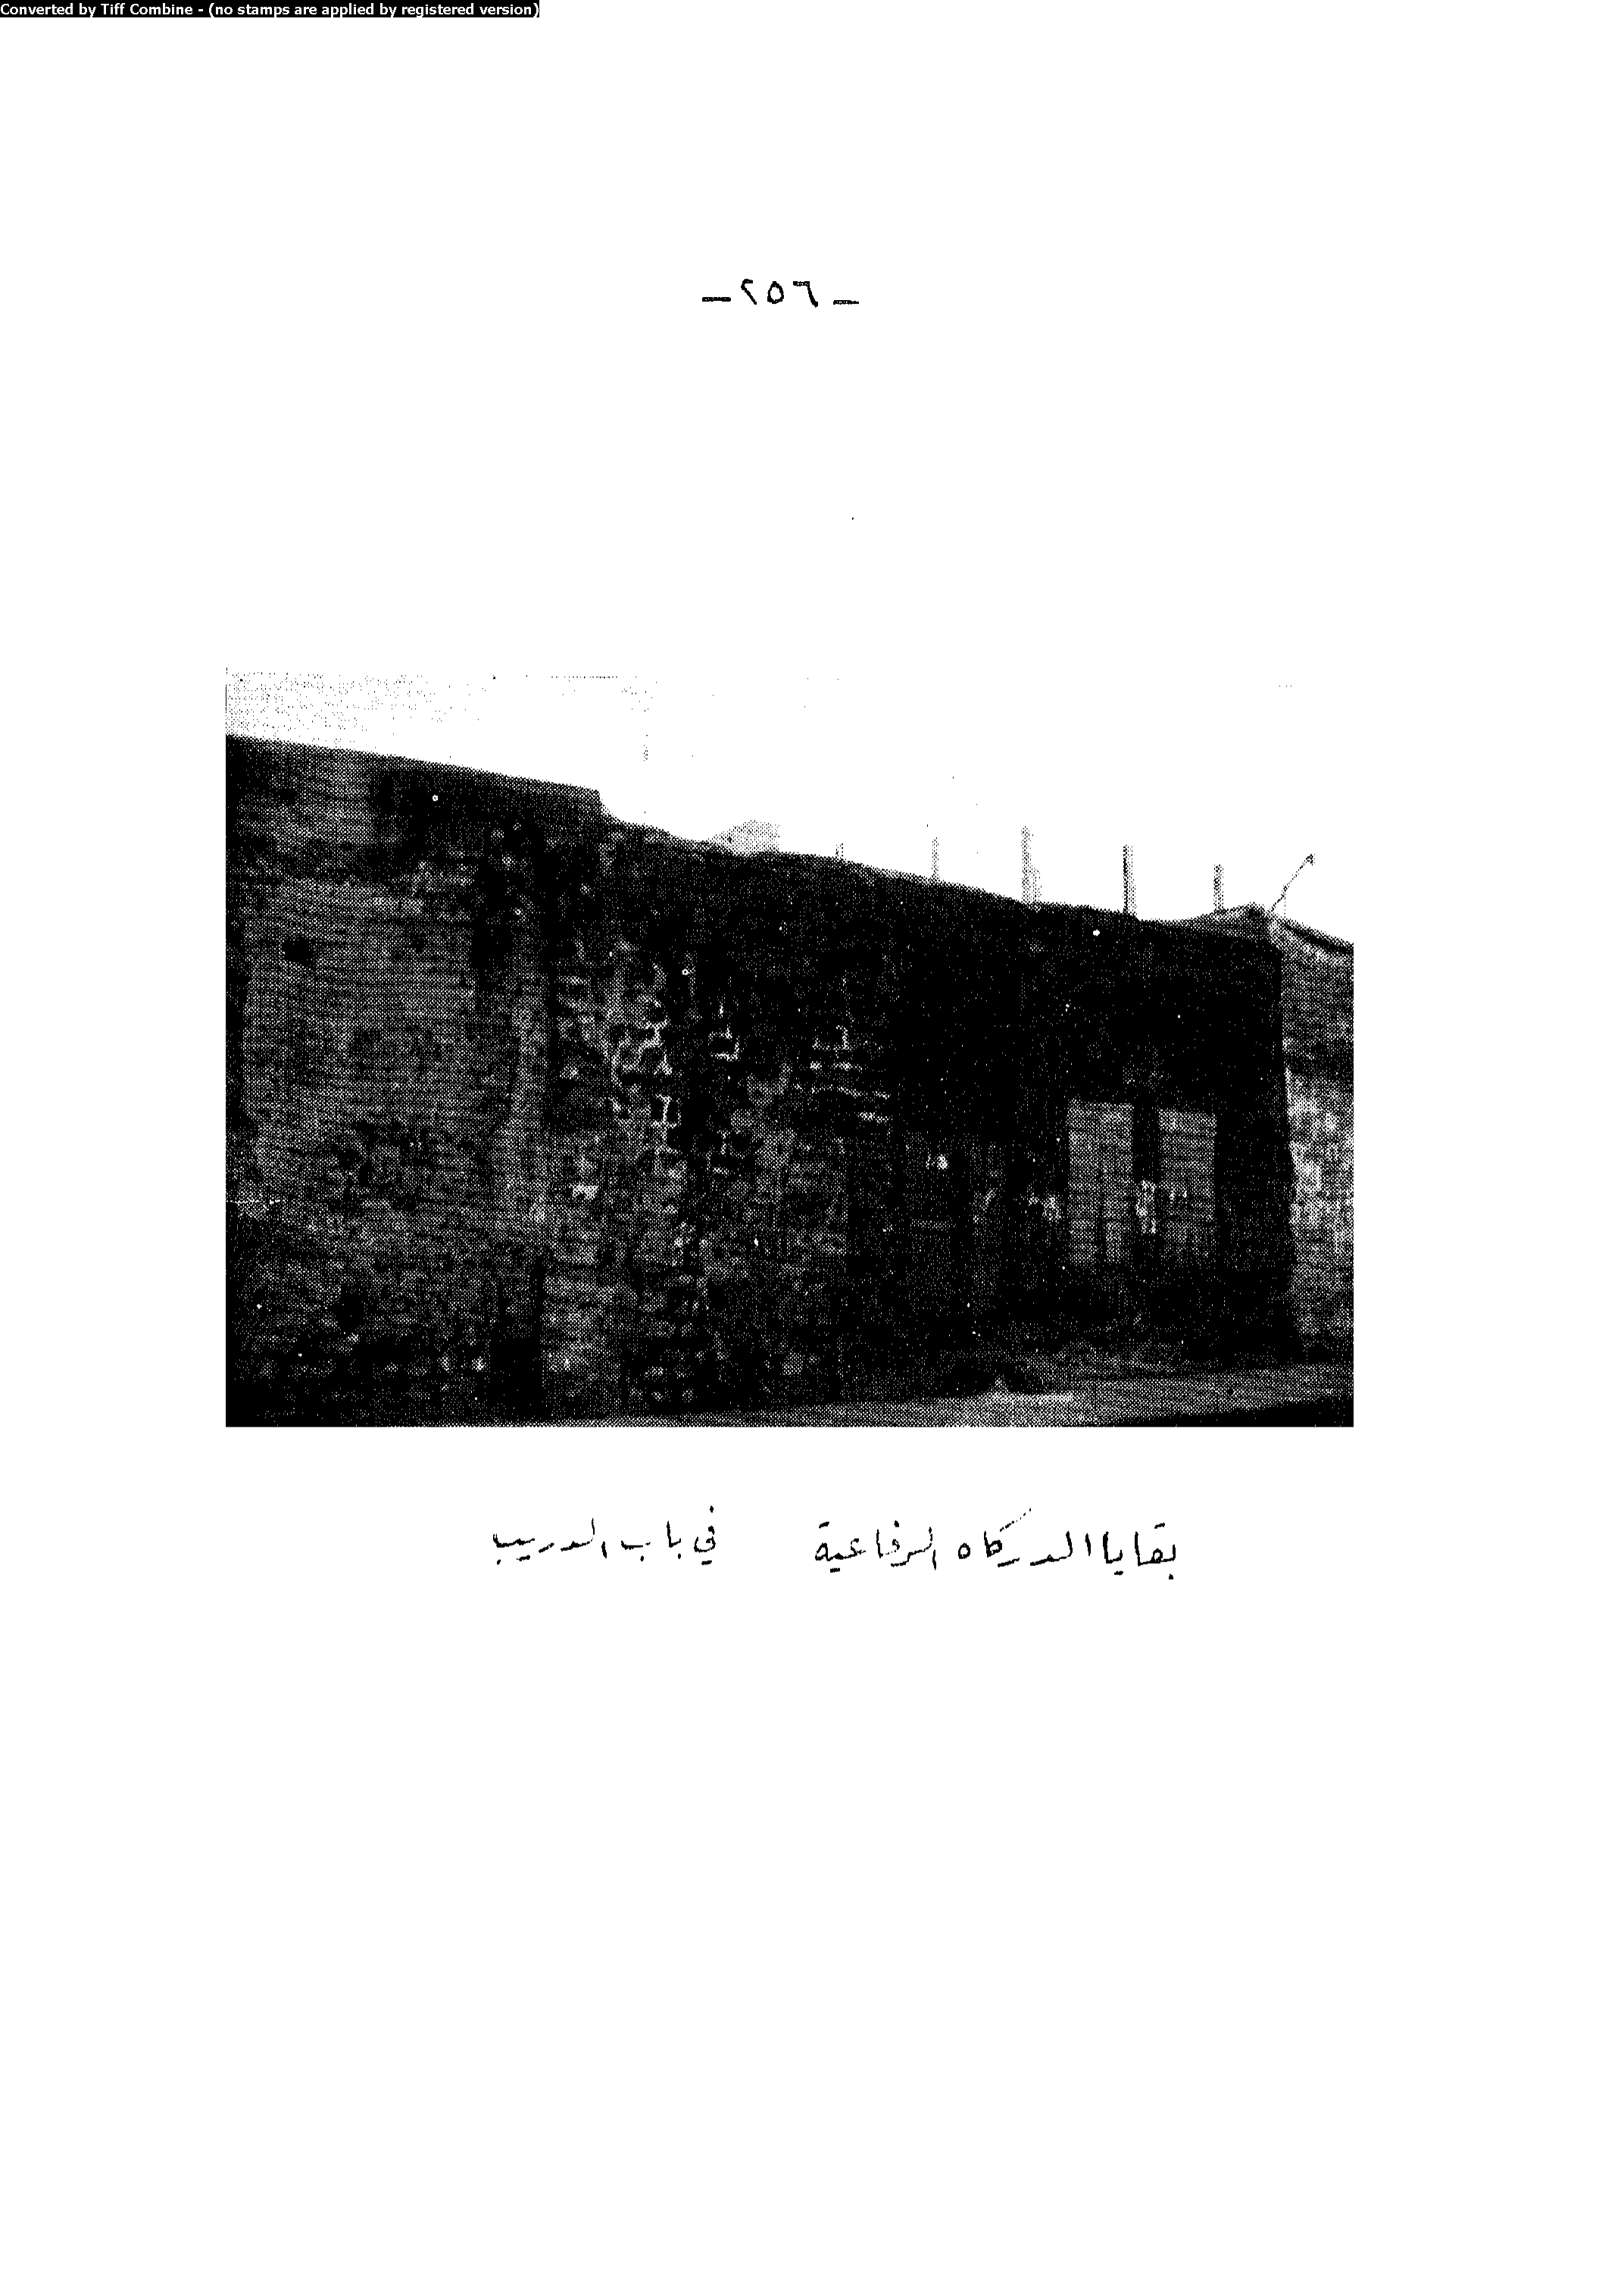 Converted by Tiff Combine - (no stamps are applied by registered version)
– ٢٥٦ –
بقايا الدركاه الرفاعية في باب الدريب